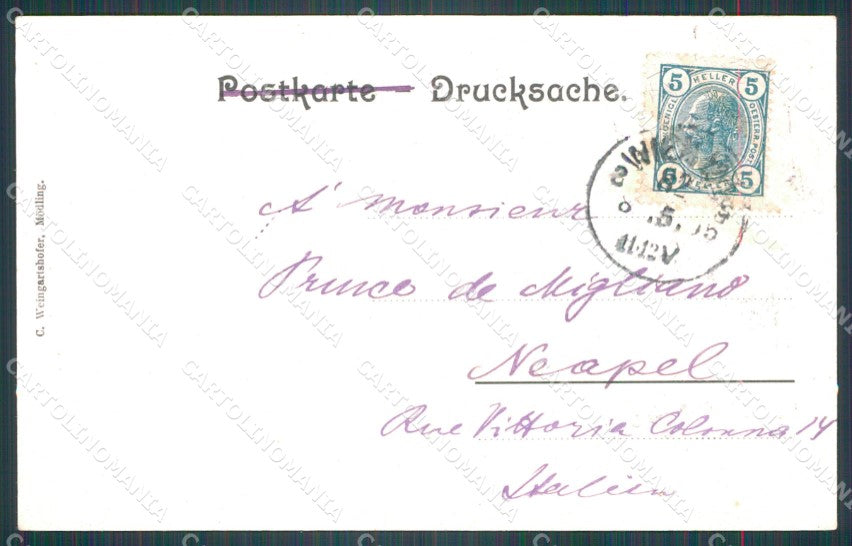 Postkarte — Drucksache.
5 HELLER 5
5 5
WIEN
8 8
5.
11-12V
A' Monsieur
Prince de Migliano
Neapel
Rue Vittoria Colonna 14
Italien
C. Weingartshofer, Mödling.
CARTOLINOMANIA